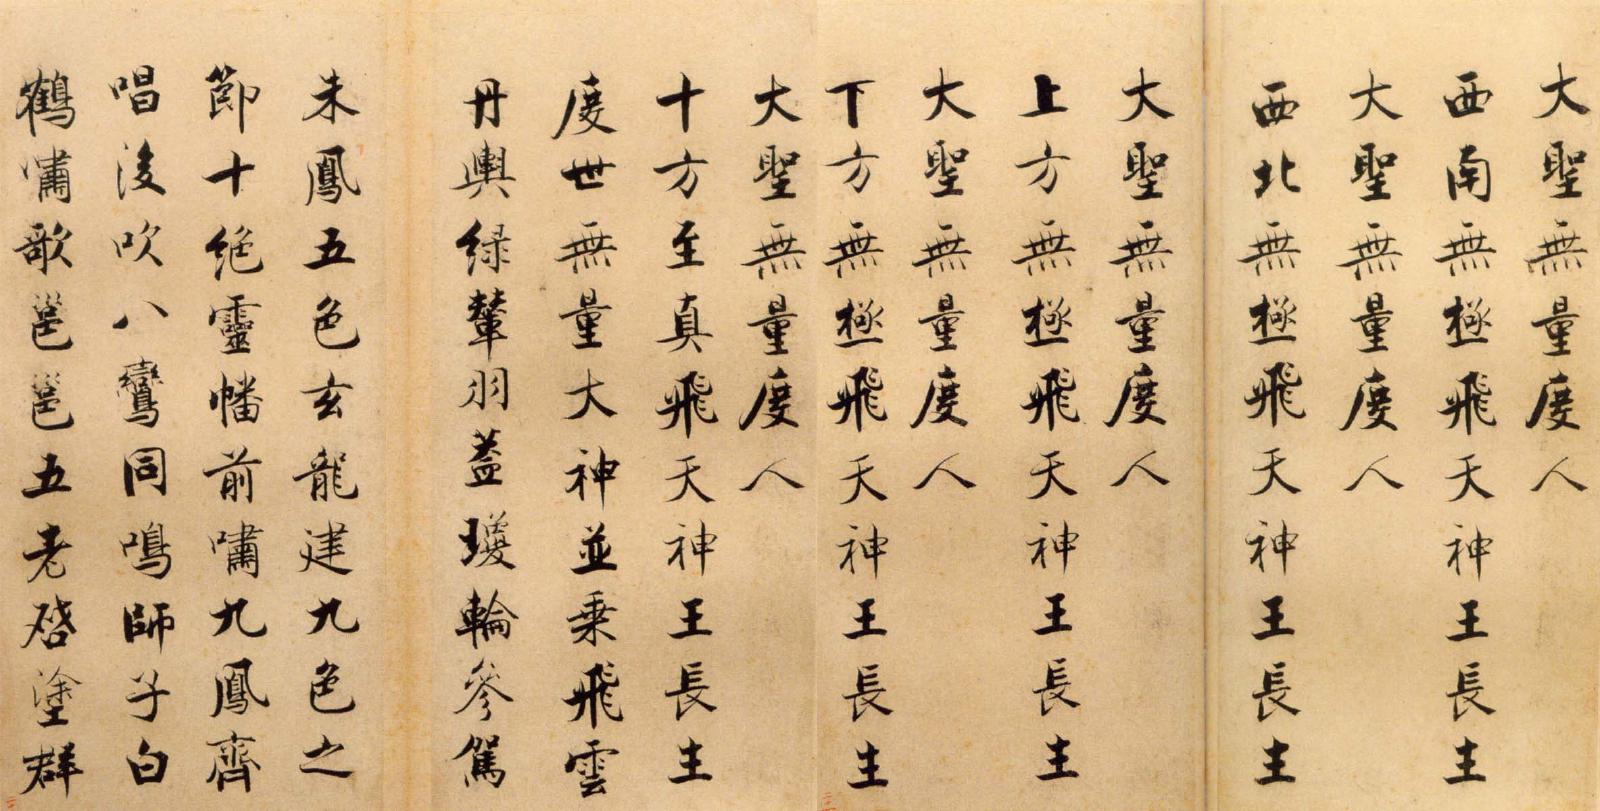 大聖無量度人
西南無極飛天神王長生
大聖無量度人
西北無極飛天神王長生
大聖無量度人
上方無極飛天神王長生
大聖無量度人
下方無極飛天神王長生
大聖無量度人
十方至真飛天神王長生
度世無量大神並乗飛雲
丹輿緑輦羽蓋瓊輪參駕
朱鳳五色玄龍建九色之
節十絶靈幡前嘯九鳳齊
唱後吹八鸞同鳴師子白
鶴嘯歌邕邕五老啓塗群